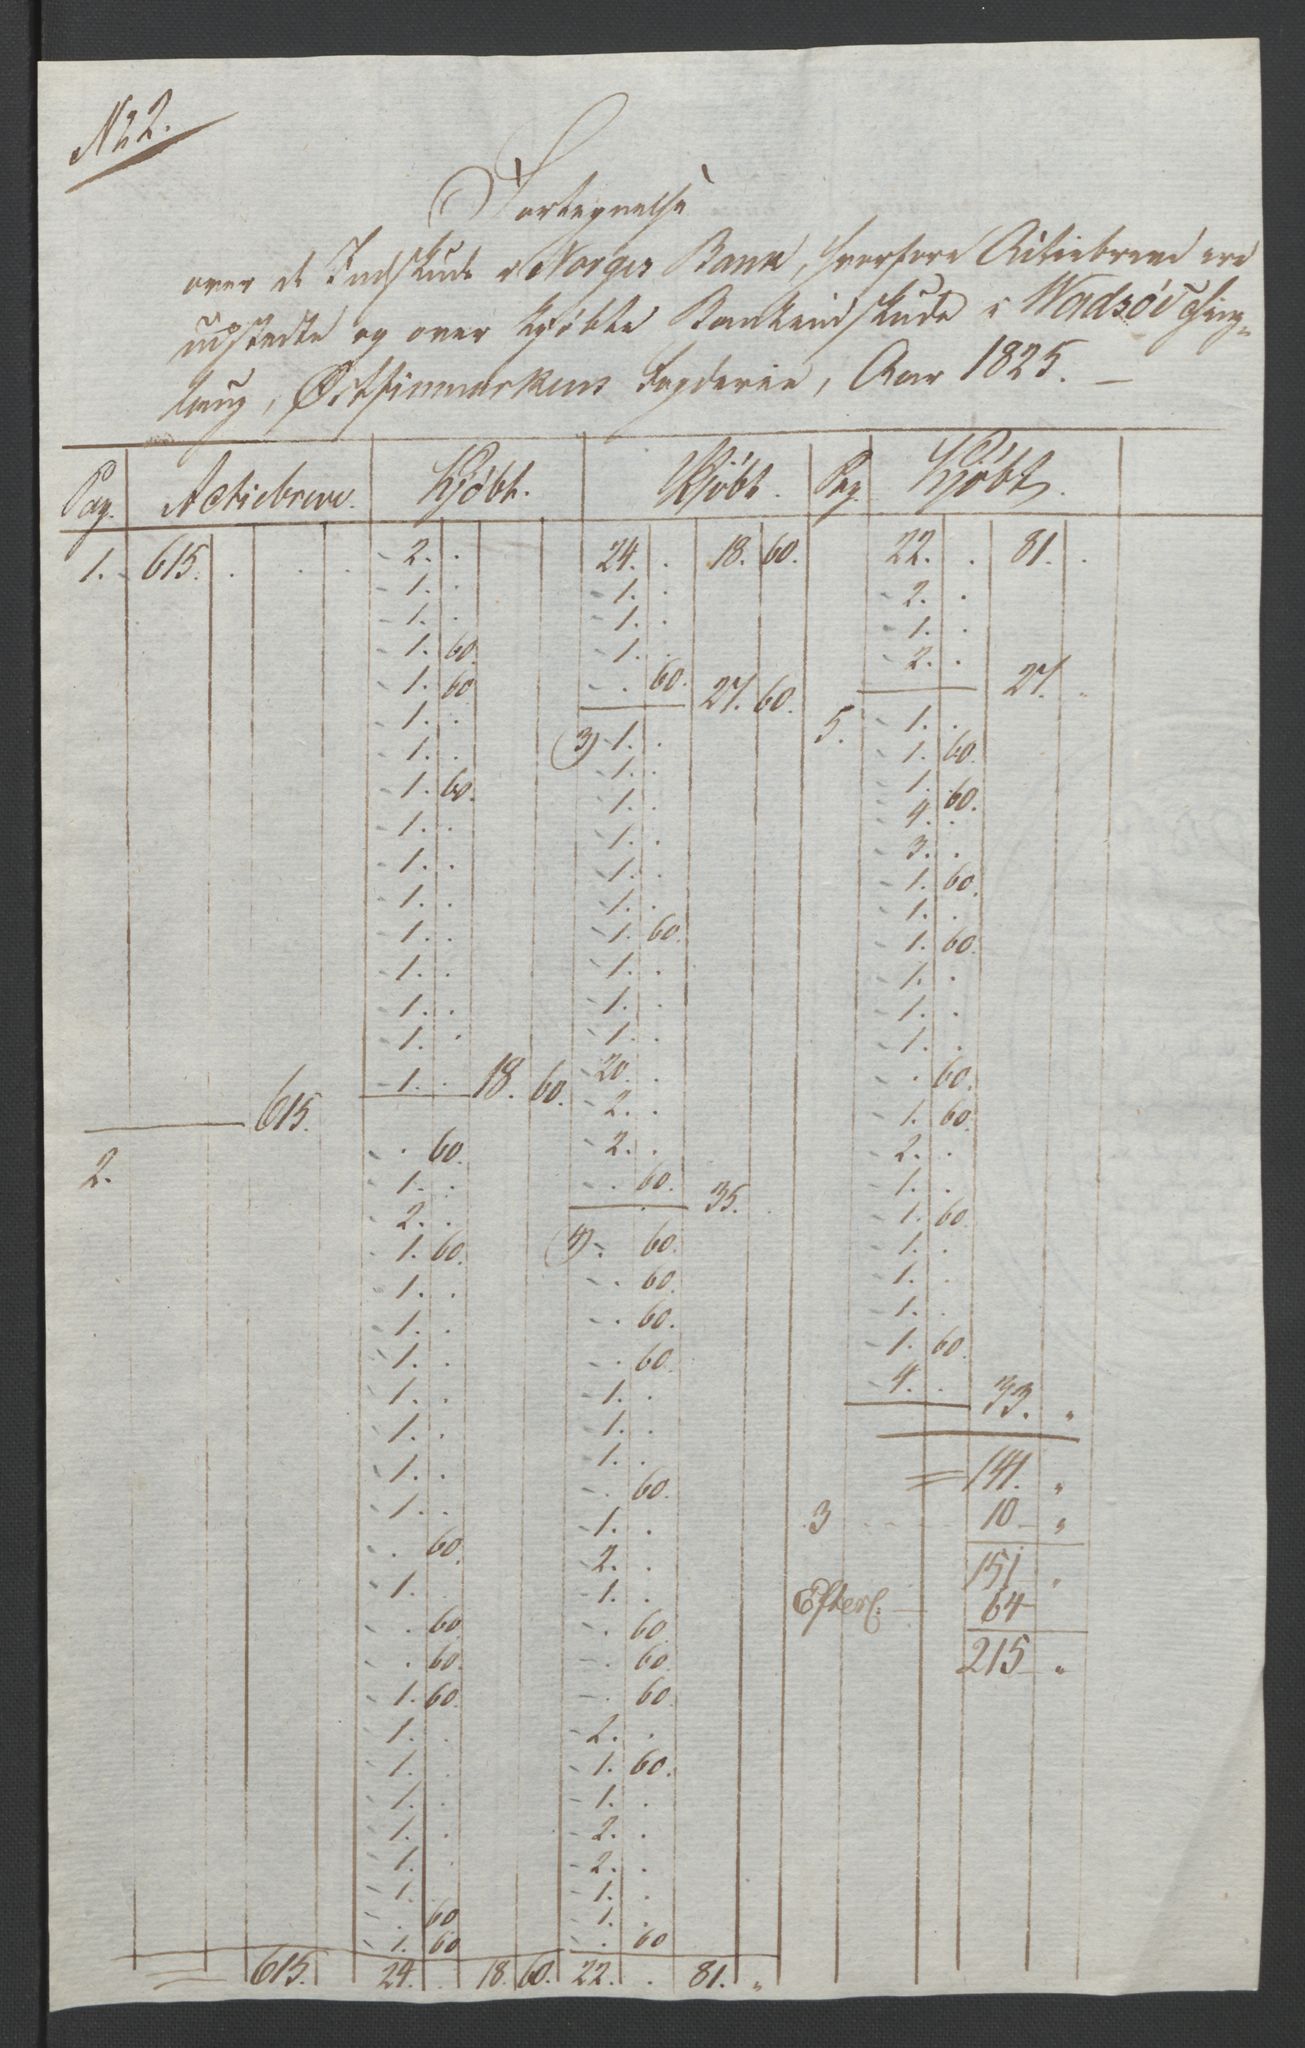 N: 2.
Fortegnelse
over de Indskud i Norges Bank, hvorfore Actiebreve ere
udstedte og over kjøbte Bankindskude i Wadsøe Thing-
laug, Østfinmarkens Fogderie, Aar 1825. —
Pag. Actiebreve. Kjøbt. Kjøbt. Pag. Kjøbt.
1. 615. . . . 2. . 24. . 18. 60. 22. . 81. .
1. . 1. . 2. .
1. . 1. . 1. .
1. 60. 1. . 2. . 27. .
1. 60 . 60. 27. 60.
1. . 3) 1. . 5. 1. .
1. . 1. . 1. 60.
1. 60. 1. . 1. 60.
1. . 1. . 4. .
1. . 1. . 3. .
1. . 1. . 1. 60.
1. . 1. 60. 1. .
1. . 1. . 1. 60.
1. . 1. . 1. .
1. . 1. . 1. .
1. . 18. 60. 20. . 1. .
615. 2. . . 60.
. 60. 2. . 1. 60.
2. 1. . . 60. 35. . 2. .
2. . 1. .
1. 60. 4) . 60. 1. 60.
1. . . 60. 1. .
1. . . 60. 1. .
1. . . 60. 1. .
1. . 1. . 1. 60.
1. . 1. . 4. . 33. "
1. . 1. . = 141. "
1. . . 60. 3 10 "
. 60. 1. . 151 "
1. . 2. . Efterl: 64
. 60. 1. . 215 "
. 60. . 60.
1. 60. . 60.
1. . . 60.
1. . 2. .
1. . 1. 60.
1. . 1. .
1. . 2. .
1. . 2. .
. 60 1. .
1. 60 1. .
. 60
= 615. 24. . 18. 60. 22. . 81. "